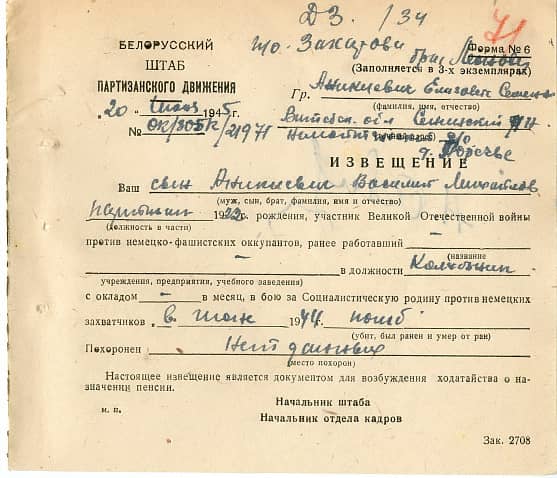 ДЗ./34
71
БЕЛОРУССКИЙ
ШТАБ
ПАРТИЗАНСКОГО ДВИЖЕНИЯ
Форма № 6
(Заполняется в 3-х экземплярах)
Гр. Аникиевич Елизавете
(фамилия, имя, отчество)
20 1945 г.
Витебск. обл Сенинский
№
д. Поречье
ИЗВЕЩЕНИЕ
Ваш сын Аникиевич Василий Михайлов
(муж, сын, брат, фамилия, имя и отчество)
партизан 1922 г. рождения, участник Великой Отечественной войны
(должность в части)
против немецко-фашистских оккупантов, ранее работавший –
(название
– в должности Колхозник
учреждения, предприятия, учебного заведения)
с окладом – в месяц, в бою за Социалистическую родину против немецких
захватчиков в 1944 г. погиб
(убит, был ранен и умер от ран)
Похоронен Нет данных
(место похорон)
Настоящее извещение является документом для возбуждения ходатайства о на-
значении пенсии.
Начальник штаба
м. п.
Начальник отдела кадров
Зак. 2708